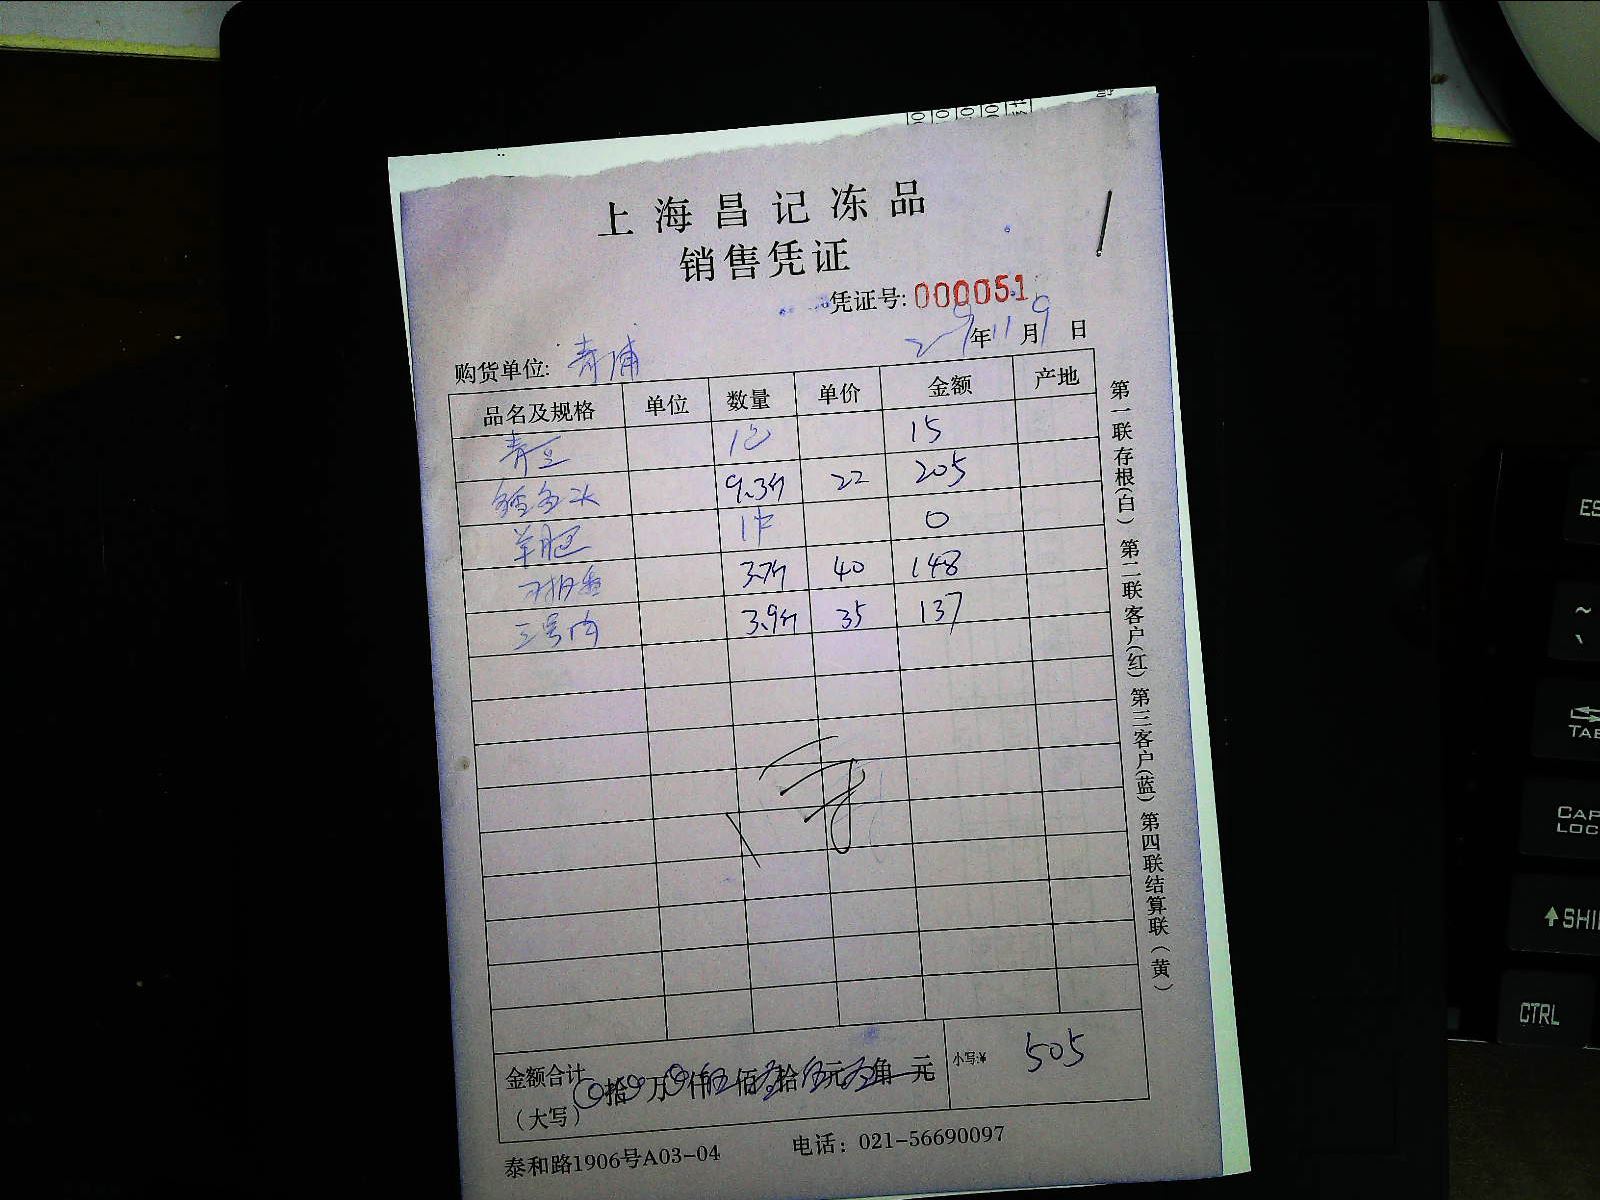 上海昌记冻品
销售凭证
凭证号: 000051
年 11 月 9 日
购货单位: 青浦
品名及规格 单位 数量 单价 金额 产地
青豆 1包 15
9.3斤 22 205
羊腿 1件 0
3.7斤 40 148
三号肉 3.9斤 35 137
金额合计
(大写) 拾 万 仟伍佰 拾伍元 角 元 小写:¥ 505
泰和路1906号A03-04 电话: 021-56690097
第一联存根(白) 第二联客户(红) 第三客户(蓝) 第四联结算联(黄)
ES
~
TAB
CAP
LOC
SHI
CTRL